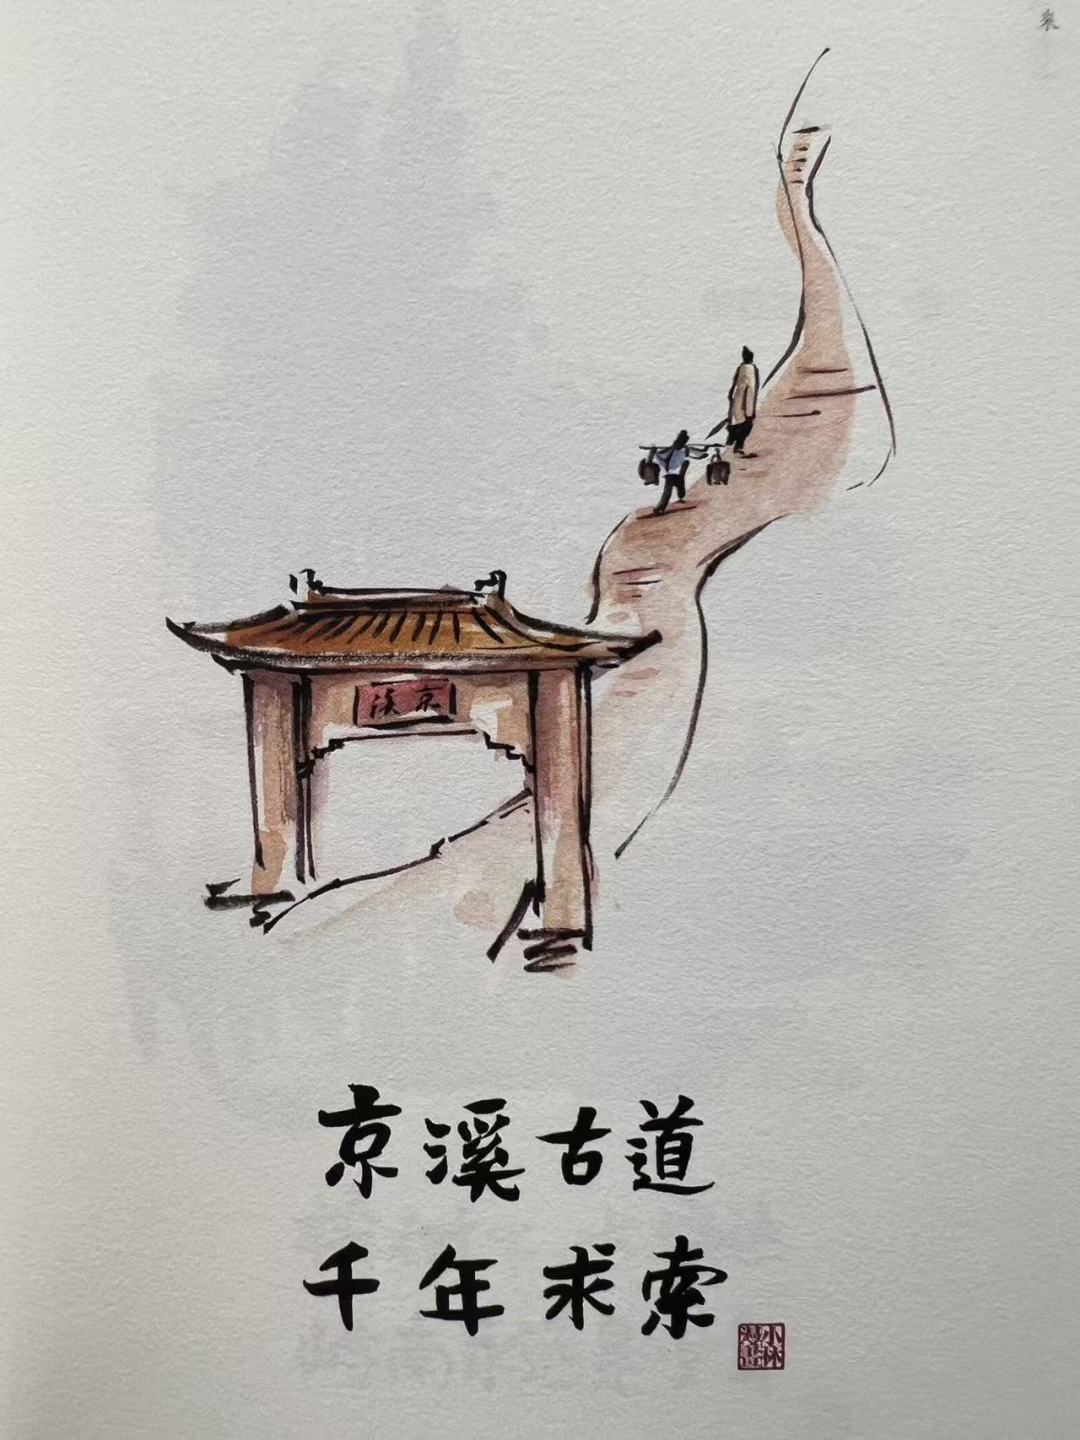 京溪
京溪古道
千年求索
小林